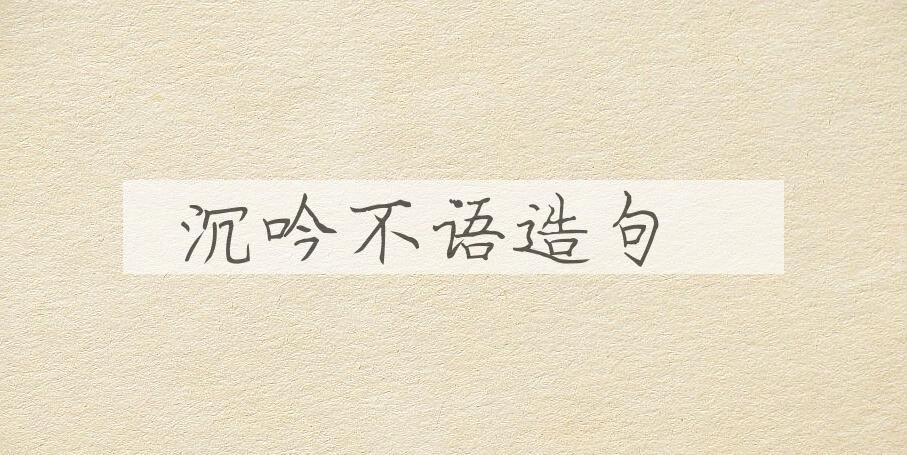 沉吟不语造句